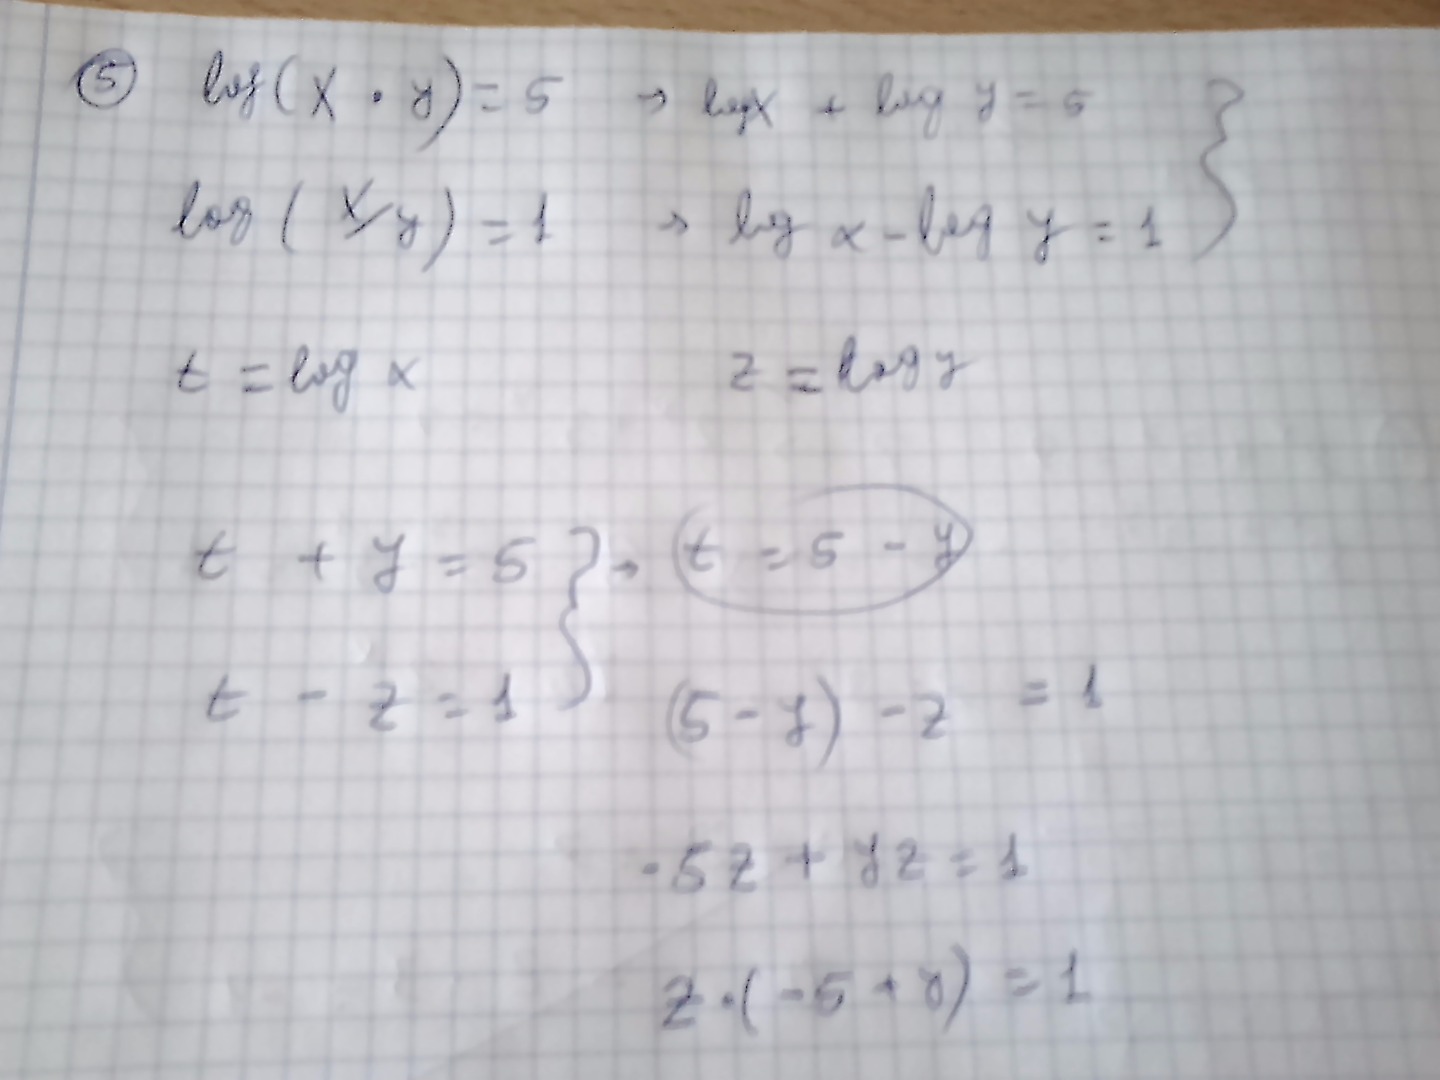 ⑤ log(x · y) = 5 → log x + log y = 5 }
log(x/y) = 1 → log x - log y = 1
t = log x z = log y
t + y = 5 } → t = 5 - y
t - z = 1 (5 - y) - z = 1
-5z + yz = 1
z · (-5 + y) = 1